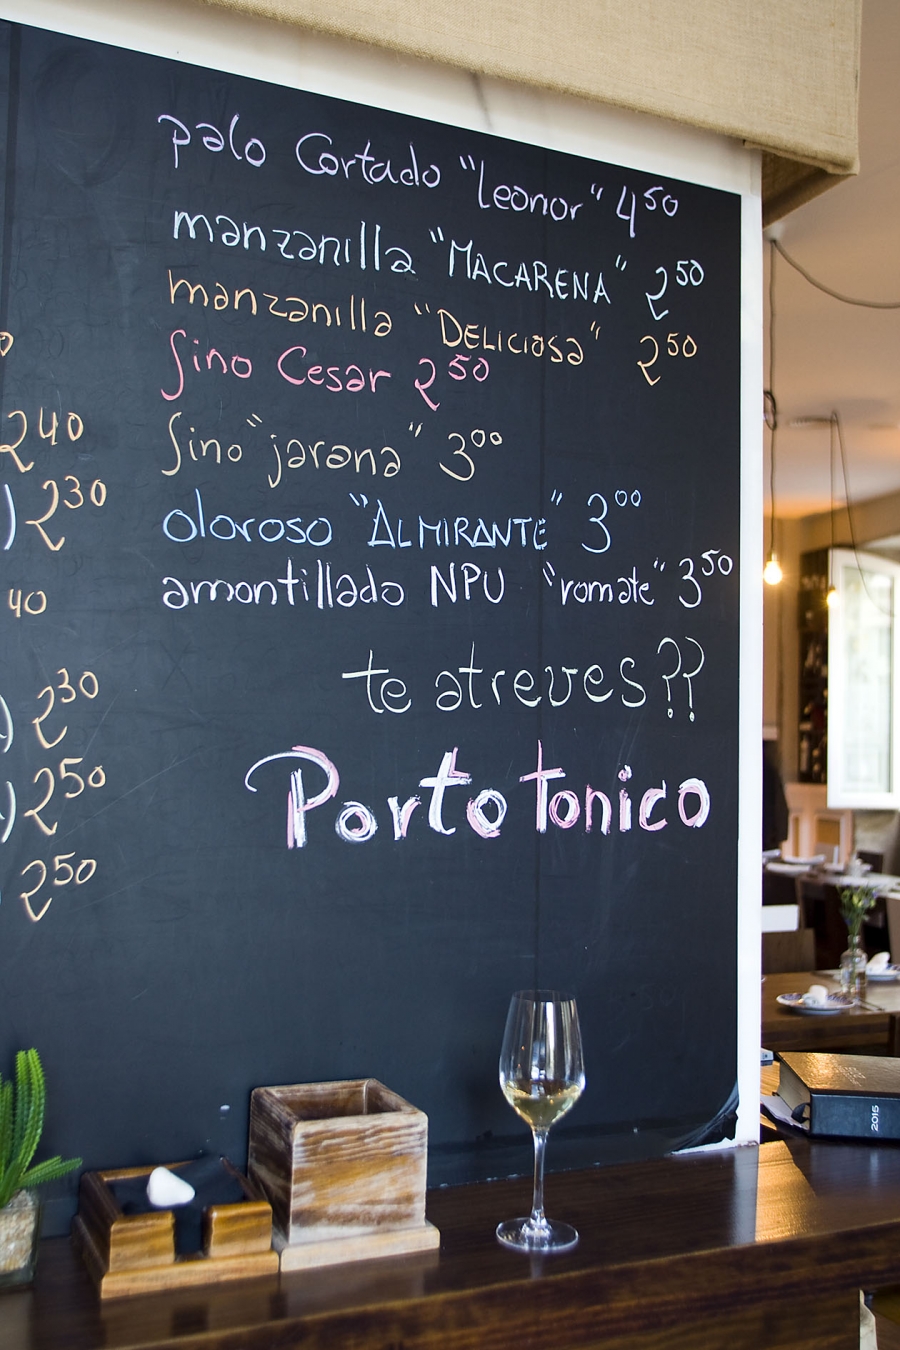 palo Cortado "Leonor" 4⁵⁰
manzanilla "MACARENA" 2⁵⁰
manzanilla "DELICIOSA" 2⁵⁰
fino Cesar 2⁵⁰
fino "jarana" 3⁰⁰
oloroso "ALMIRANTE" 3⁰⁰
amontillado NPU "romate" 3⁵⁰
te atreves??
Porto tonico
2⁴⁰
) 2³⁰
40
) 2³⁰
) 2⁵⁰
2⁵⁰
2015